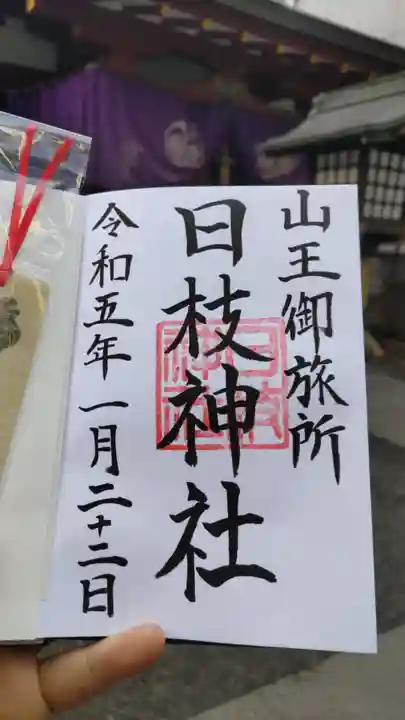 山王御旅所
日枝神社
令和五年一月二十二日